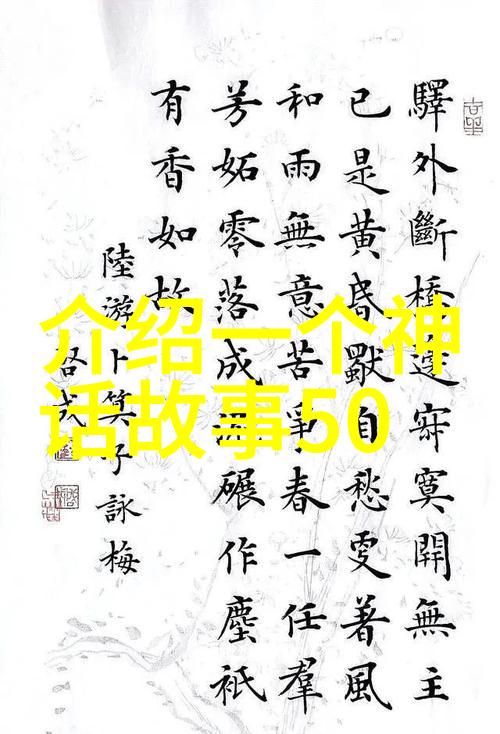 驛外斷橋邊寂寞開無主
已是黃昏獨自愁更著風
和雨無意苦爭春一任羣
芳妬零落成泥碾作塵祇
有香如故
陸游卜算子詠梅
介绍一个神
话故事50